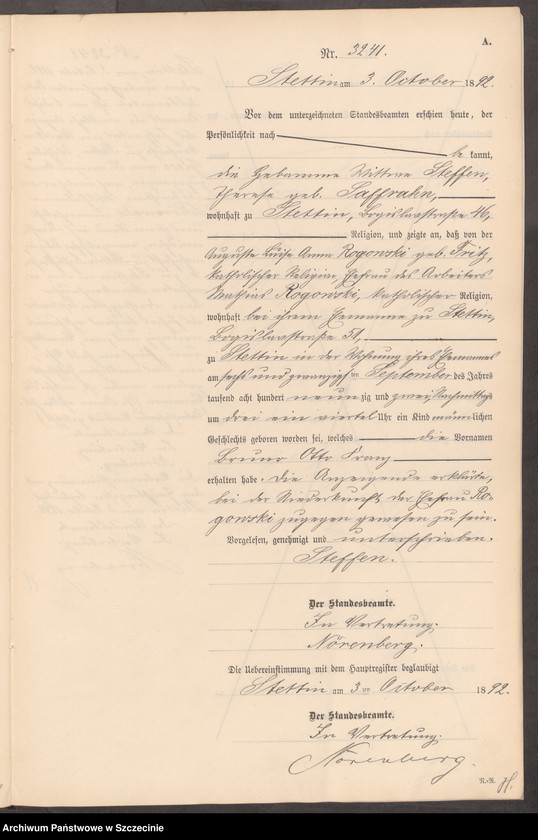 A.
Nr. 3241.
Stettin am 3. October 1892.
Vor dem unterzeichneten Standesbeamten erschien heute, der
Persönlichkeit nach
be kannt,
die Hebamme Wittwe Steffen,
Therese geb. Saffrahn,
wohnhaft zu Stettin, Bogislavstraße 46,
Religion, und zeigte an, daß von der
Auguste Luise Anna Rogowski geb. Fritz,
katholischer Religion, Ehefrau des Arbeiters
Mathias Rogowski, katholischer Religion,
wohnhaft bei ihrem Ehemanne zu Stettin,
Bogislavstraße 51,
zu Stettin in der Wohnung ihres Ehemannes
am sechs und zwanzigsten September des Jahres
tausend acht hundert neunzig und zwei, Nachmittags
um drei ein viertel Uhr ein Kind männlichen
Geschlechts geboren worden sei, welches die Vornamen
Bruno Otto Franz
erhalten habe. Die Anzeigende erklärte,
bei der Niederkunft der Ehefrau Ro-
gowski zugegen gewesen zu sein.
Vorgelesen, genehmigt und unterschrieben.
Steffen.
Der Standesbeamte.
In Vertretung.
Nörenberg.
Die Uebereinstimmung mit dem Hauptregister beglaubigt
Stettin am 3ten October 1892.
Der Standesbeamte.
In Vertretung.
Nörenberg.
N.-R.
Archiwum Państwowe w Szczecinie